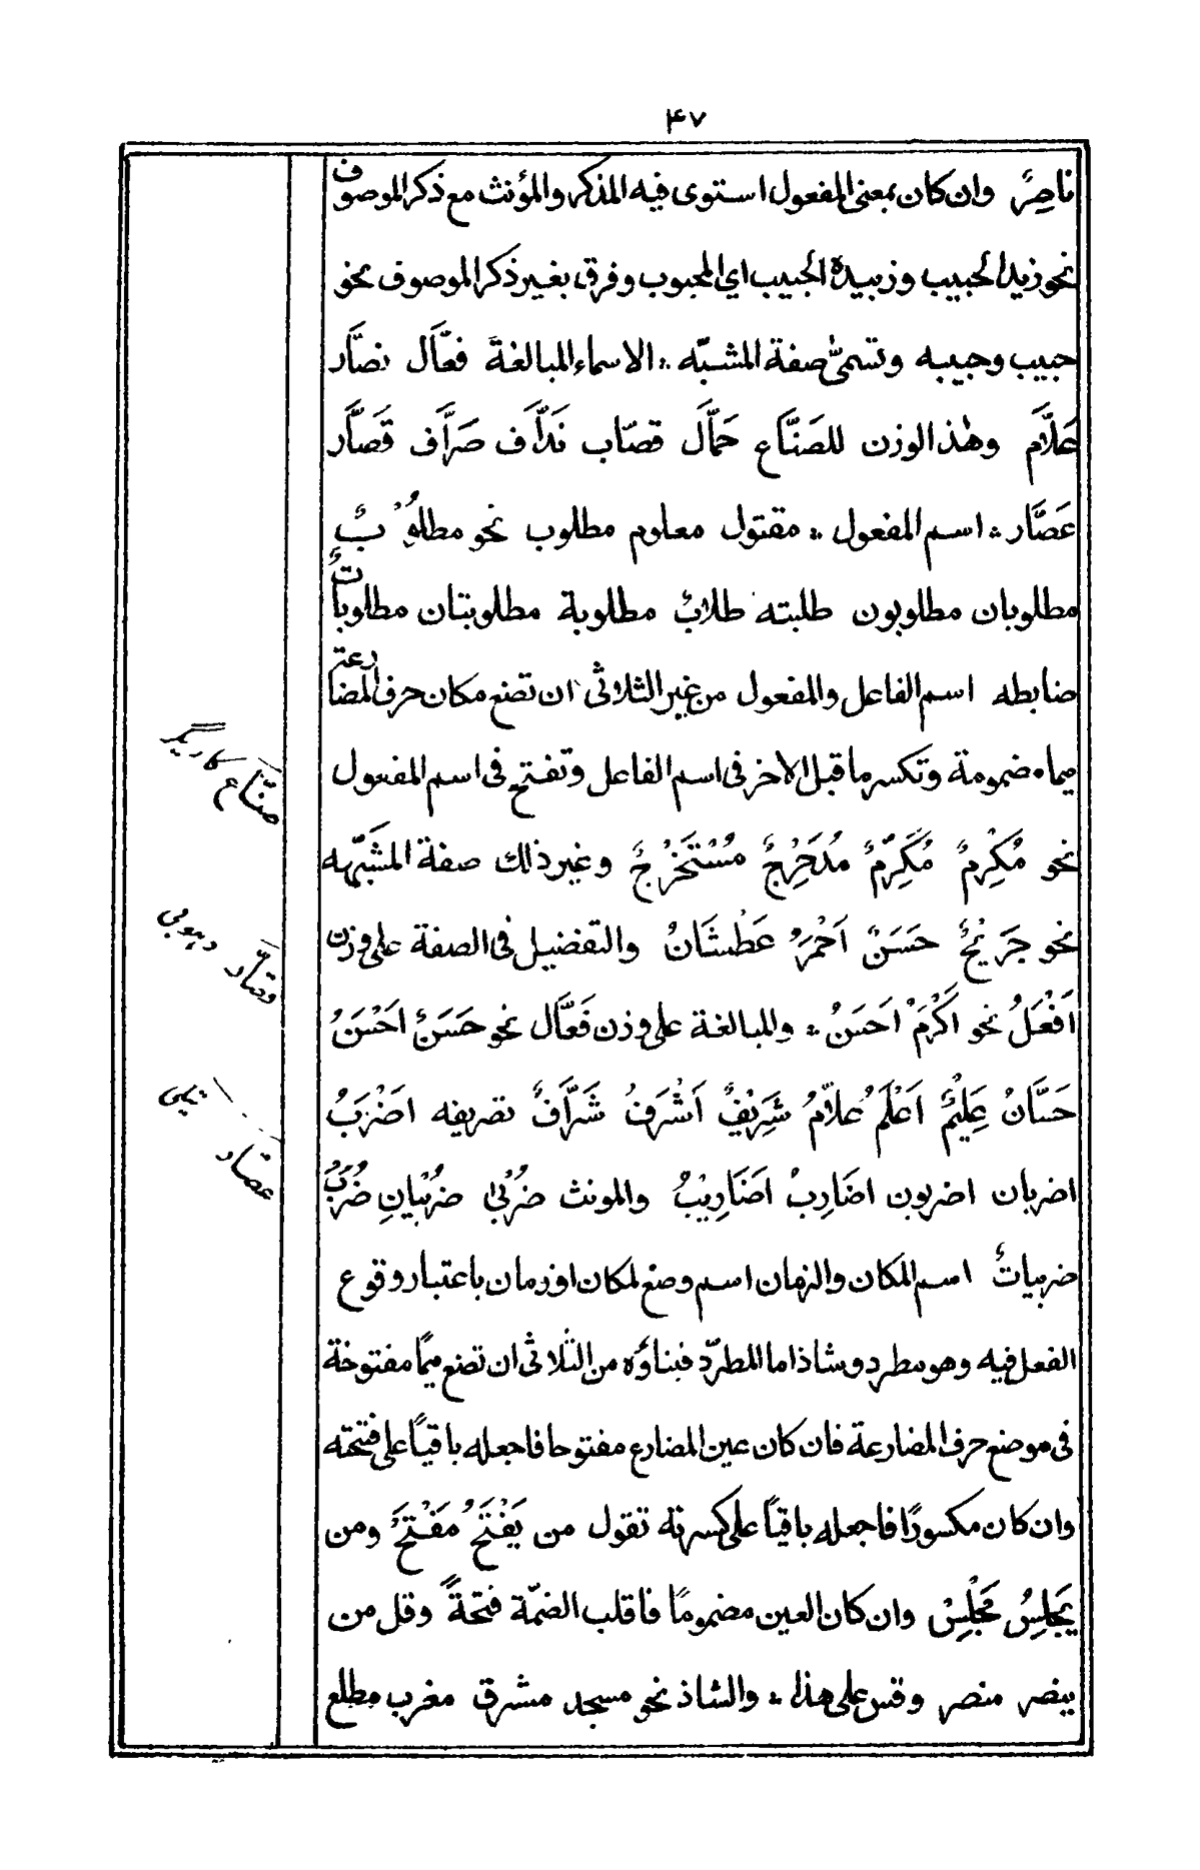 ۴۷
ناصِرٌ وان كان بمعنى المفعول استوى فيه المذكر والمؤنث مع ذكر الموصوف
نحو زيد الحبيب وزبيدة الحبيب اي المحبوب وفرق بغير ذكر الموصوف نحو
حبيب وحبيبه وتسمىّ صفة المشبّه ؞ الاسماء المبالغة فعَّال نصَّار
عَلاَّم وهٰذ الوزن للصَنَّاع حَمَّال قصّاب نَدَّاف صَرَّاف قَصَّار
عَصَّار ؞ اسم المفعول ؞ مقتول معلوم مطلوب نحو مطلُوْبٌ
مطلوبان مطلوبون طلبته طلابٌ مطلوبة مطلوبتان مطلوباتٌ
ضابطه اسم الفاعل والمفعول من غير الثلاثى ان تضع مكان حرف المضارعة
ميما مضمومة وتكسر ما قبل الاخر فى اسم الفاعل وتفتح فى اسم المفعول
نحو مُكْرِمٌ مُكَرِّمٌ مُدَحْرِجٌ مُسْتَخْرِجٌ وغير ذالك صفة المشَبّهه
نحو جَرِيْحٌ حَسَنٌ اَحْمَرُ عَطْشَانُ والتفضيل فى الصفة على وزن
اَفْعَلُ نحو اَكْرَمُ اَحَسَنُ ؞ والمبالغة على وزن فَعَّال نحو حَسَنٌ اَحْسَنُ
حَسَّانٌ عَلِيْمٌ اَعْلَمُ عَلاّمٌ شَرِيْفٌ اَشْرَفُ شَرَّافٌ تصريفه اضْرَبُ
اضربان اضربون اضَارِبُ اضَارِيْبُ والمونث ضُرْبىٰ ضُرْبَيانِ ضُرَبٌ
ضربياتٌ اسم المكان والزمان اسم وضع لمكان او زمان باعتبار وقوع
الفعل فيه وهو مطرد وشاذ اما المطرّد فبناؤه من الثّلاثى ان تضع ميمًا مفتوحة
فى موضع حرف المضارعة فان كان عين المضارع مفتوحا فاجعله باقياً على فتحته
وان كان مكسورًا فاجعله باقياً على كسرته تقول من يَفْتَحُ مَفْتَحٌ ومن
يَجْلِسُ مَجْلِسٌ وان كان العين مضمومًا فاقلب الضمّة فتحةً وقل من
ينصر منصر وقس على هذا ؞ والشاذ نحو مسجد مشرق مغرب مطلع
صنَّاع كاريگر
قصَّار دہوبى
عصّار تيلى